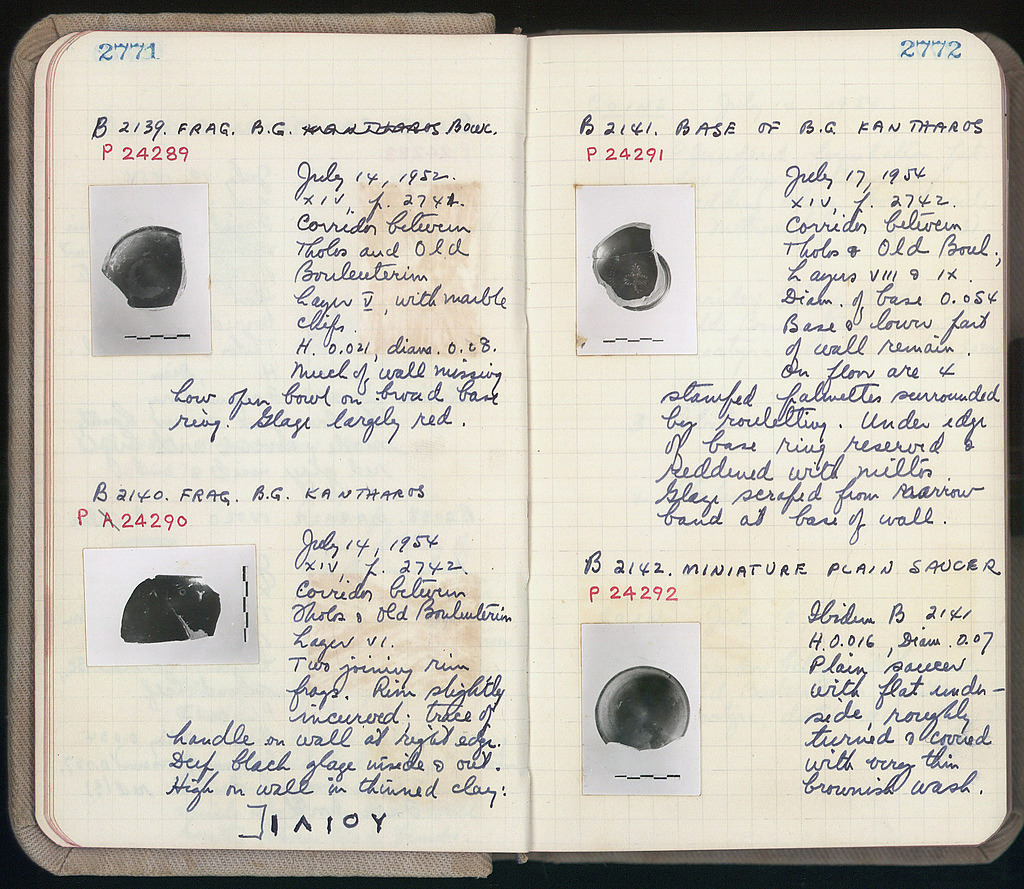 2771
B 2139. FRAG. B.G. KANTHAROS BOWL.
P 24289
July 14, 1952.
XIV, p. 2741.
Corridor between
Tholos and Old
Bouleuterion
Layer V, with marble
chips.
H. 0.021, diam. 0.08.
Much of wall missing
Low open bowl on broad base
ring. Glaze largely red.
B 2140. FRAG. B.G. KANTHAROS
P A 24290
July 14, 1954
XIV p. 2742.
Corridor between
Tholos & Old Bouleuterion
Layer VI.
Two joining rim
frags. Rim slightly
incurved; trace of
handle on wall at right edge.
Deep black glaze inside & out.
High on wall in thinned clay:
]ΙΛΙΟΥ
2772
B 2141. BASE OF B.G. KANTHAROS
P 24291
July 17, 1954
XIV, p. 2742.
Corridor between
Tholos & Old Boul.,
Layers VIII & IX.
Diam. of base 0.054
Base & lower part
of wall remain.
On floor are 4
stamped palmettes surrounded
by rouletting. Under edge
of base ring reserved &
reddened with miltos
Glaze scraped from narrow
band at base of wall.
B 2142. MINIATURE PLAIN SAUCER
P 24292
Ibidem B 2141
H. 0.016, Diam. 0.07
Plain saucer
with flat under-
side, roughly
turned & covered
with very thin
brownish wash.